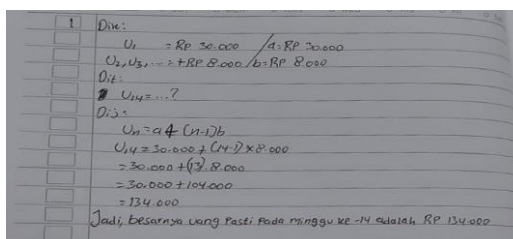 1 Dik:
U₁ = RP 30.000 / a = RP 30.000
U₂, U₃, ... = +RP 8.000 / b = RP 8.000
Dit:
U₁₄ = ...?
Dij:
Uₙ = a + (n-1)b
U₁₄ = 30.000 + (14-1) x 8.000
= 30.000 + (13) 8.000
= 30.000 + 104.000
= 134.000
Jadi, besarnya uang Pasti Pada minggu ke -14 adalah RP 134.000